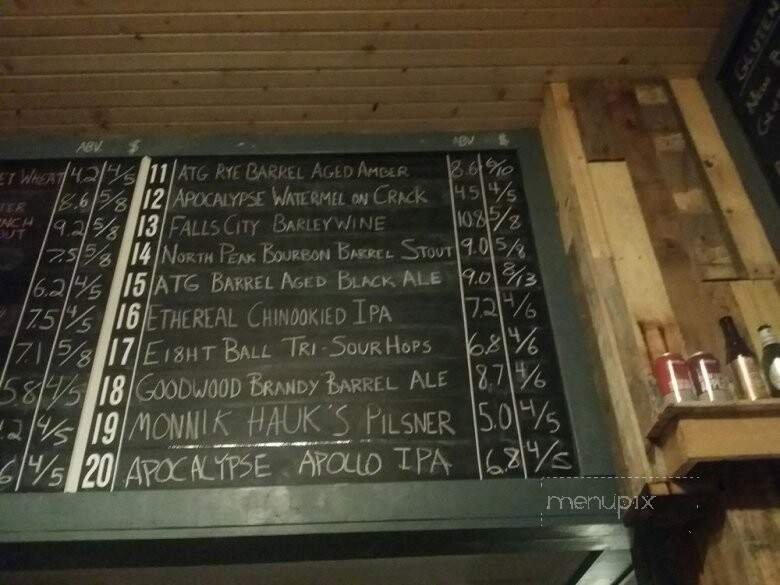 ABV $
ET WHEAT 4.2 4/5
8.6 5/8
9.2 5/8
7.5 5/8
6.2 4/5
7.5 4/5
7.1 5/8
5.8 4/5
.2 4/5
6 4/5
ABV $
11 ATG RYE BARREL AGED AMBER 8.6 6/10
12 APOCALYPSE WATERMEL ON CRACK 4.5 4/5
13 FALLS CITY BARLEYWINE 10.8 5/8
14 NORTH PEAK BOURBON BARREL STOUT 9.0 5/8
15 ATG BARREL AGED BLACK ALE 9.0 8/13
16 ETHEREAL CHINOOKIED IPA 7.2 4/6
17 EI8HT BALL TRI-SOUR HOPS 6.8 4/6
18 GOODWOOD BRANDY BARREL ALE 8.7 4/6
19 MONNIK HAUK'S PILSNER 5.0 4/5
20 APOCALYPSE APOLLO IPA 6.8 4/5
GLUTEN
menupix